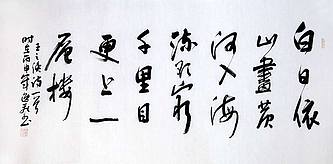 白日依
山盡黄
河入海
流欲窮
千里目
更上一
層樓
王之渙詩一首
时在丙申年